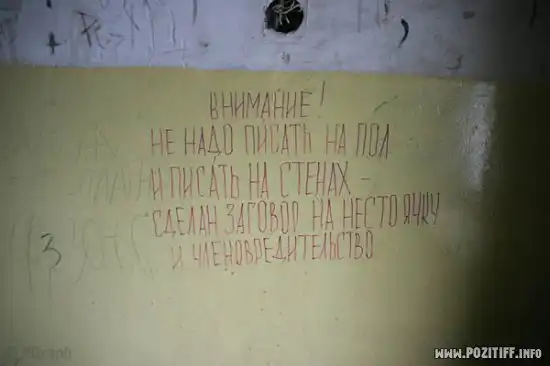 ВНИМАНИЕ!
НЕ НАДО ПИСАТЬ НА ПОЛ
И ПИСАТЬ НА СТЕНАХ –
СДЕЛАН ЗАГОВОР НА НЕСТОЯЧКУ
И ЧЛЕНОВРЕДИТЕЛЬСТВО
3
WWW.POZITIFF.INFO